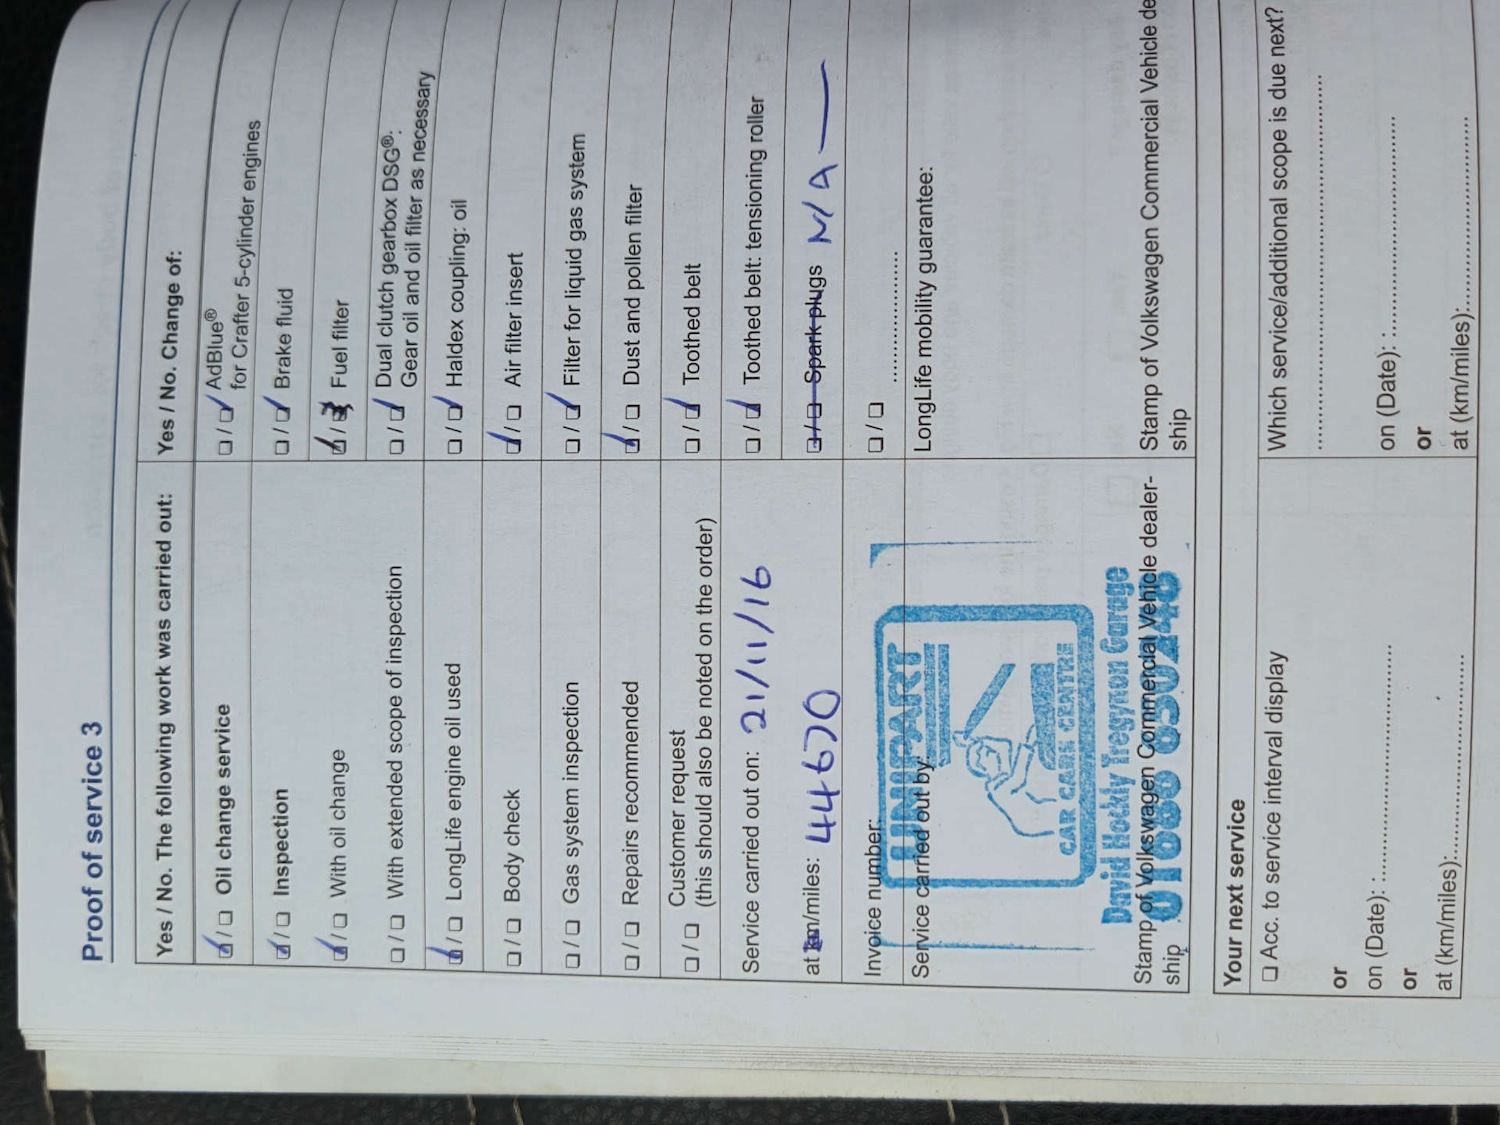 Proof of service 3
Yes / No. The following work was carried out:
☑ / ☐ Oil change service
☑ / ☐ Inspection
☑ / ☐ With oil change
☐ / ☐ With extended scope of inspection
☑ / ☐ LongLife engine oil used
☐ / ☐ Body check
☐ / ☐ Gas system inspection
☐ / ☐ Repairs recommended
☐ / ☐ Customer request
(this should also be noted on the order)
Service carried out on: 21/11/16
at km/miles: 44670
Invoice number:
Service carried out by:
UNIPART
CAR CARE CENTRE
David Hockly Tregynon Garage
01686 650248
Stamp of Volkswagen Commercial Vehicle dealer-
ship
Yes / No. Change of:
☐ / ☑ AdBlue®
for Crafter 5-cylinder engines
☐ / ☑ Brake fluid
☑ / ☐ Fuel filter
☐ / ☑ Dual clutch gearbox DSG®:
Gear oil and oil filter as necessary
☐ / ☑ Haldex coupling: oil
☑ / ☐ Air filter insert
☐ / ☑ Filter for liquid gas system
☑ / ☐ Dust and pollen filter
☐ / ☑ Toothed belt
☐ / ☑ Toothed belt: tensioning roller
☐ / ☐ Spark plugs N/A —
☐ / ☐ ......................
LongLife mobility guarantee:
Stamp of Volkswagen Commercial Vehicle de
ship
Your next service
☐ Acc. to service interval display
or
on (Date): ......................................
or
at (km/miles):...................................
Which service/additional scope is due next?
................................................................
on (Date): :......................................
or
at (km/miles):...................................